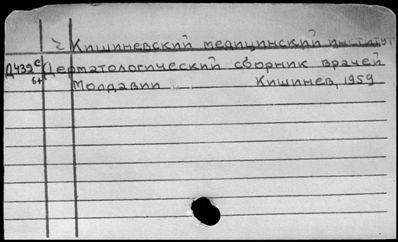 2 Кишиневский медицинский институт
Д439с Дерматологический сборник врачей
6+ Молдавии Кишинев, 1959